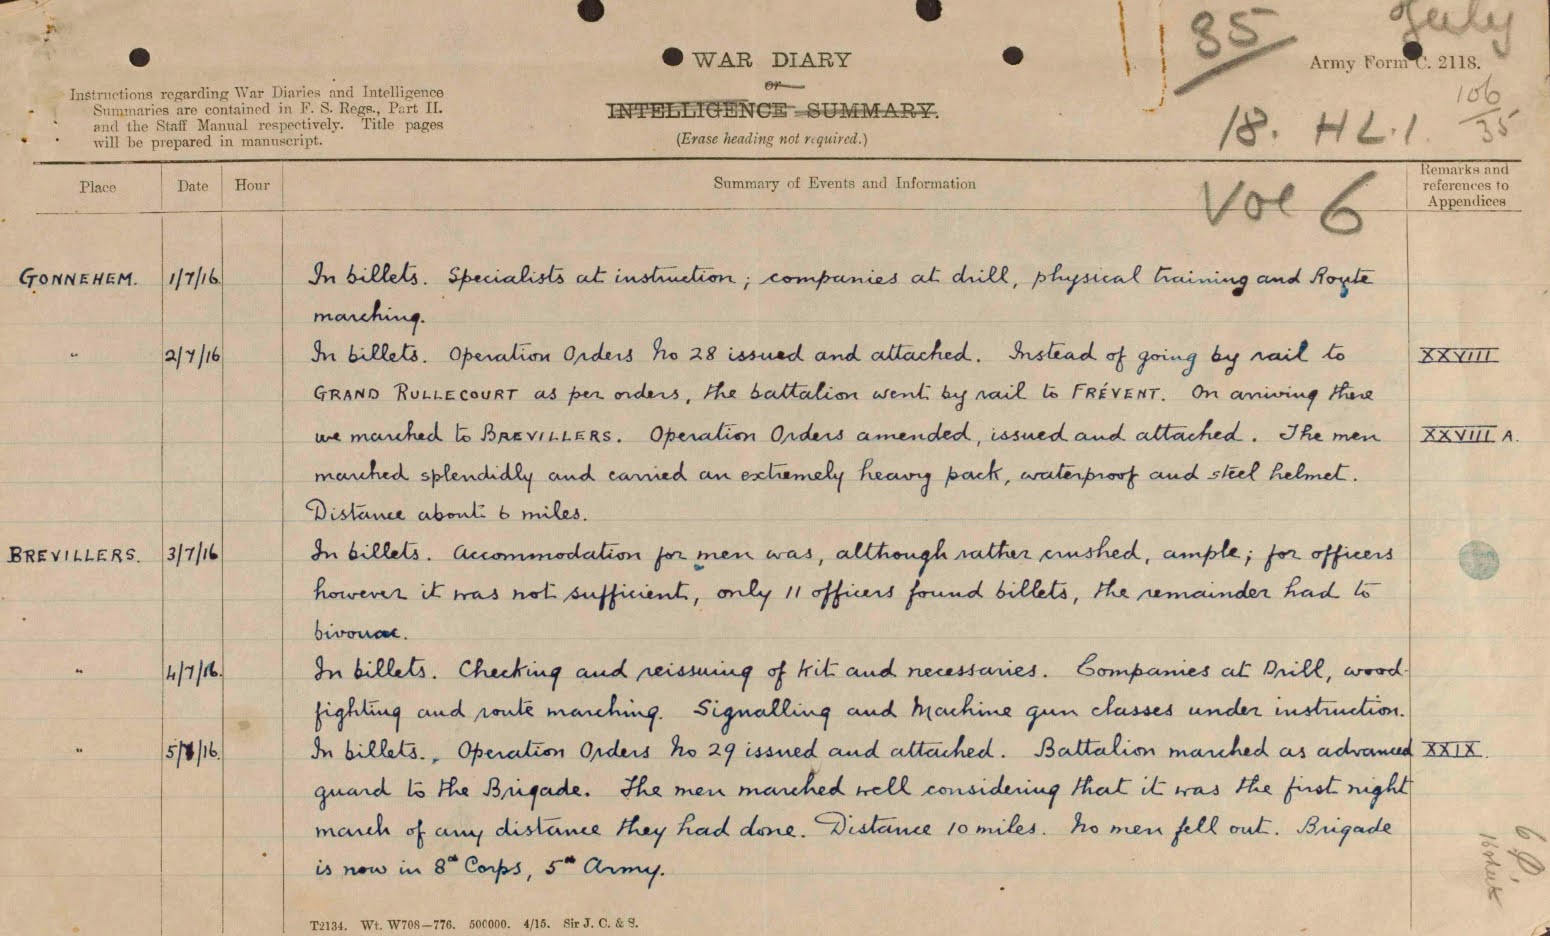 35
July
WAR DIARY
or
INTELLIGENCE SUMMARY.
(Erase heading not required.)
Army Form C. 2118.
106/35
18. H L. I.
Vol 6
Instructions regarding War Diaries and Intelligence
Summaries are contained in F. S. Regs., Part II.
and the Staff Manual respectively. Title pages
will be prepared in manuscript.
Place Date Hour Summary of Events and Information Remarks and references to Appendices
GONNEHEM. 1/7/16 In billets. Specialists at instruction; companies at drill, physical training and Route
marching.
" 2/7/16 In billets. Operation Orders No 28 issued and attached. Instead of going by rail to XXVIII
GRAND RULLECOURT as per orders, the battalion went by rail to FRÉVENT. On arriving there
we marched to BREVILLERS. Operation Orders amended, issued and attached. The men XXVIII A.
marched splendidly and carried an extremely heavy pack, waterproof and steel helmet.
Distance about 6 miles.
BREVILLERS. 3/7/16 In billets. Accommodation for men was, although rather crushed, ample; for officers
however it was not sufficient, only 11 officers found billets, the remainder had to
bivouac.
" 4/7/16. In billets. Checking and reissuing of kit and necessaries. Companies at Drill, wood-
fighting and route marching. Signalling and Machine gun classes under instruction.
" 5/7/16. In billets. Operation Orders No 29 issued and attached. Battalion marched as advanced XXIX.
guard to the Brigade. The men marched well considering that it was the first night
march of any distance they had done. Distance 10 miles. No men fell out. Brigade
is now in 8th Corps, 5th Army.
T2134. Wt. W708—776. 500000. 4/15. Sir J. C. & S.